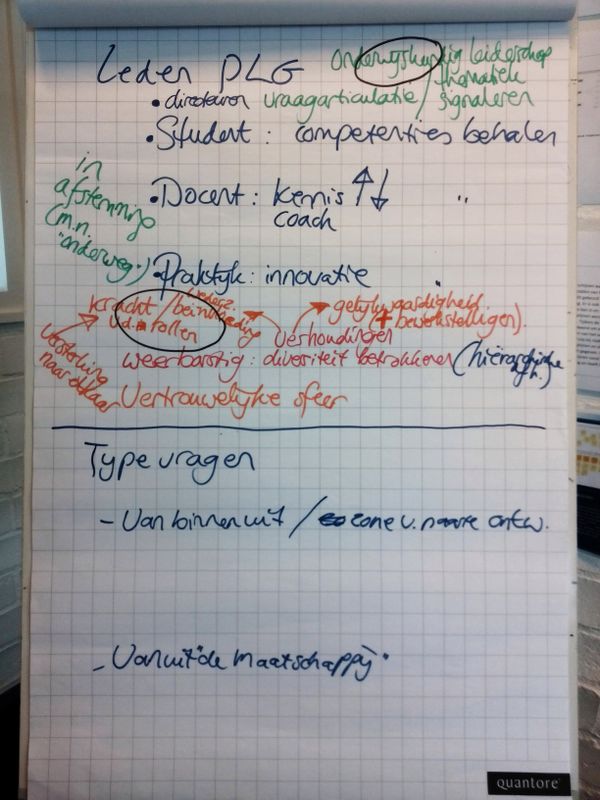 Leden PLG
onderwijskundig leiderschap
thematiek
• directeuren vraagarticulatie / signaleren
• Student : competenties behalen
in
afstemming
(m.n.
"onderweg")
• Docent : kennis ↑↓ "
coach
• Praktijk : innovatie
kracht / beïnvloeding
v.d. rollen
wederz.
verhoudingen
gelijkwaardigheid
+ bewerkstelligen).
Versterking
naar elkaar
weerbarstig : diversiteit betrokkenen (hiërarchische
afh.)
Vertrouwelijke sfeer
Type vragen
- Van binnenuit / zone v. naaste ontw.
- Vanuit "de maatschappij"
quantore